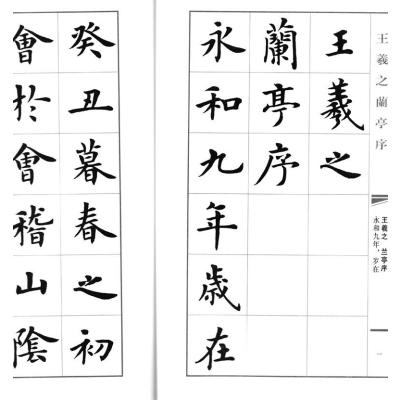 王羲之蘭亭序
王羲之 兰亭序
永和九年，岁在
一
王羲之
蘭亭序
永和九年歲在
癸丑暮春之初
會於會稽山陰